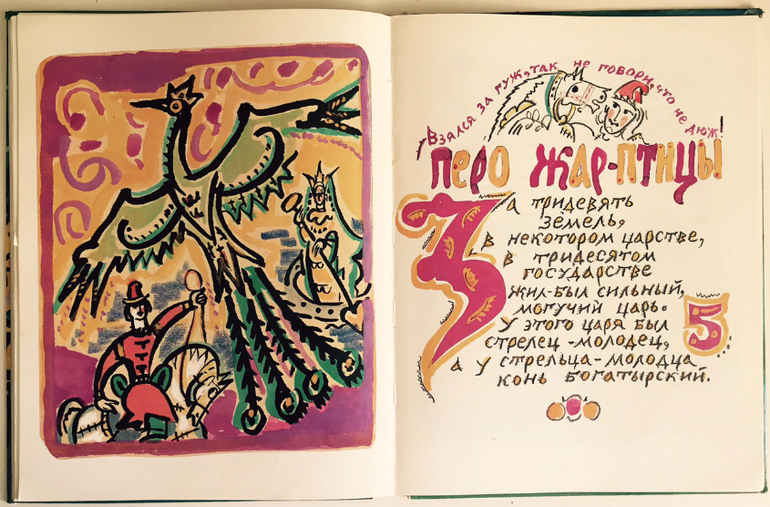 Взялся за гуж, так не говори, что не дюж!
Перо Жар-птицы
За тридевять
земель,
в некотором царстве,
в тридесятом
государстве
жил-был сильный,
могучий царь.
У этого царя был
стрелец-молодец,
а у стрельца-молодца
конь богатырский.
5